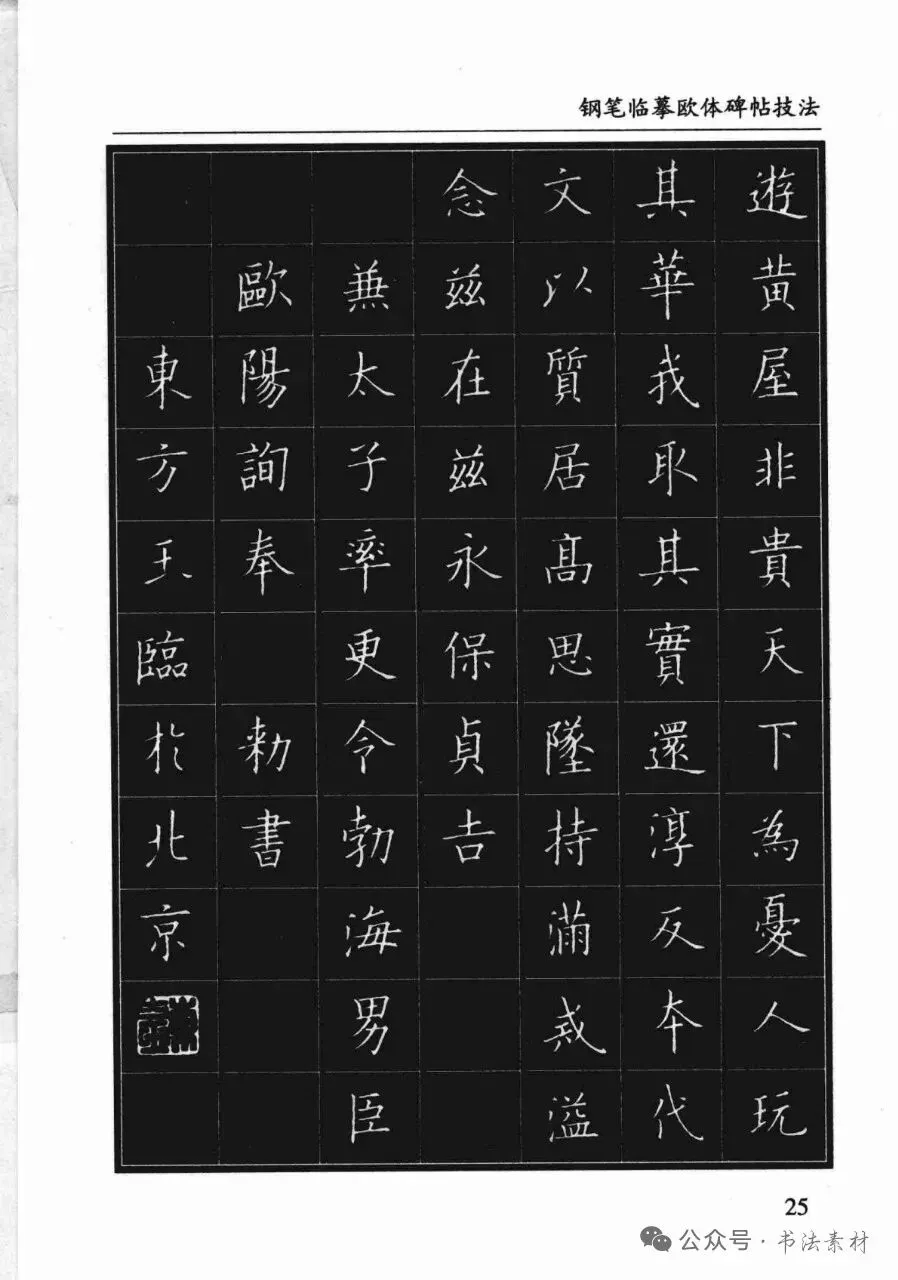 钢笔临摹欧体碑帖技法
遊黄屋非貴天下為憂人玩
其華我取其實還淳反本代
文以質居髙思墜持滿戒溢
念兹在兹永保貞吉
兼太子率更令勃海男臣
歐陽詢奉 勑書
東方玉臨於北京
25
公众号·书法素材